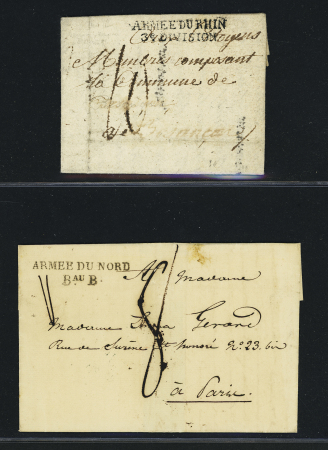 ARMEE DU RHIN
3e DIVISION
Citoyens
Membres composant
la Commune de
10
ARMEE DU NORD
Bau B
A Madame
8
Madame Gerard
Rue de Surène St honoré No. 23. bis
à Paris.